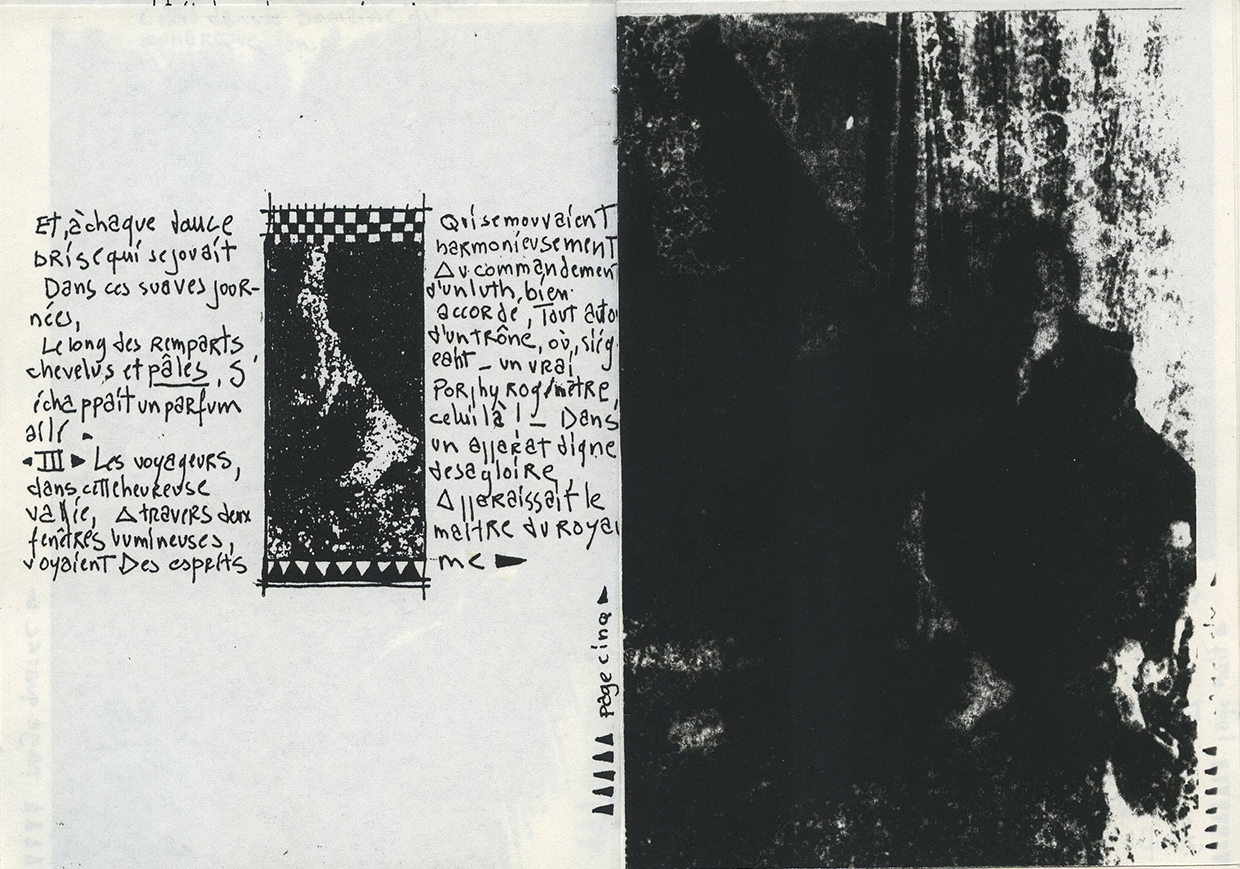 Et, à chaque douce
brise qui se jouait
Dans ces suaves jour-
nées,
Le long des remparts
chevelus et pâles, s'
échappait un parfum
ailé.
III Les voyageurs,
dans cette heureuse
vallée, A travers deux
fenêtres lumineuses,
voyaient Des esprits
Qui se mouvaient
harmonieusement
Au commandement
d'un luth bien
accordé, Tout auto
d'un trône, où, siég-
eant _ un vrai
Porphyrogénète,
celui là ! _ Dans
un apparat digne
de sa gloire,
Apparaissait le
maître du Royau
me
page cinq